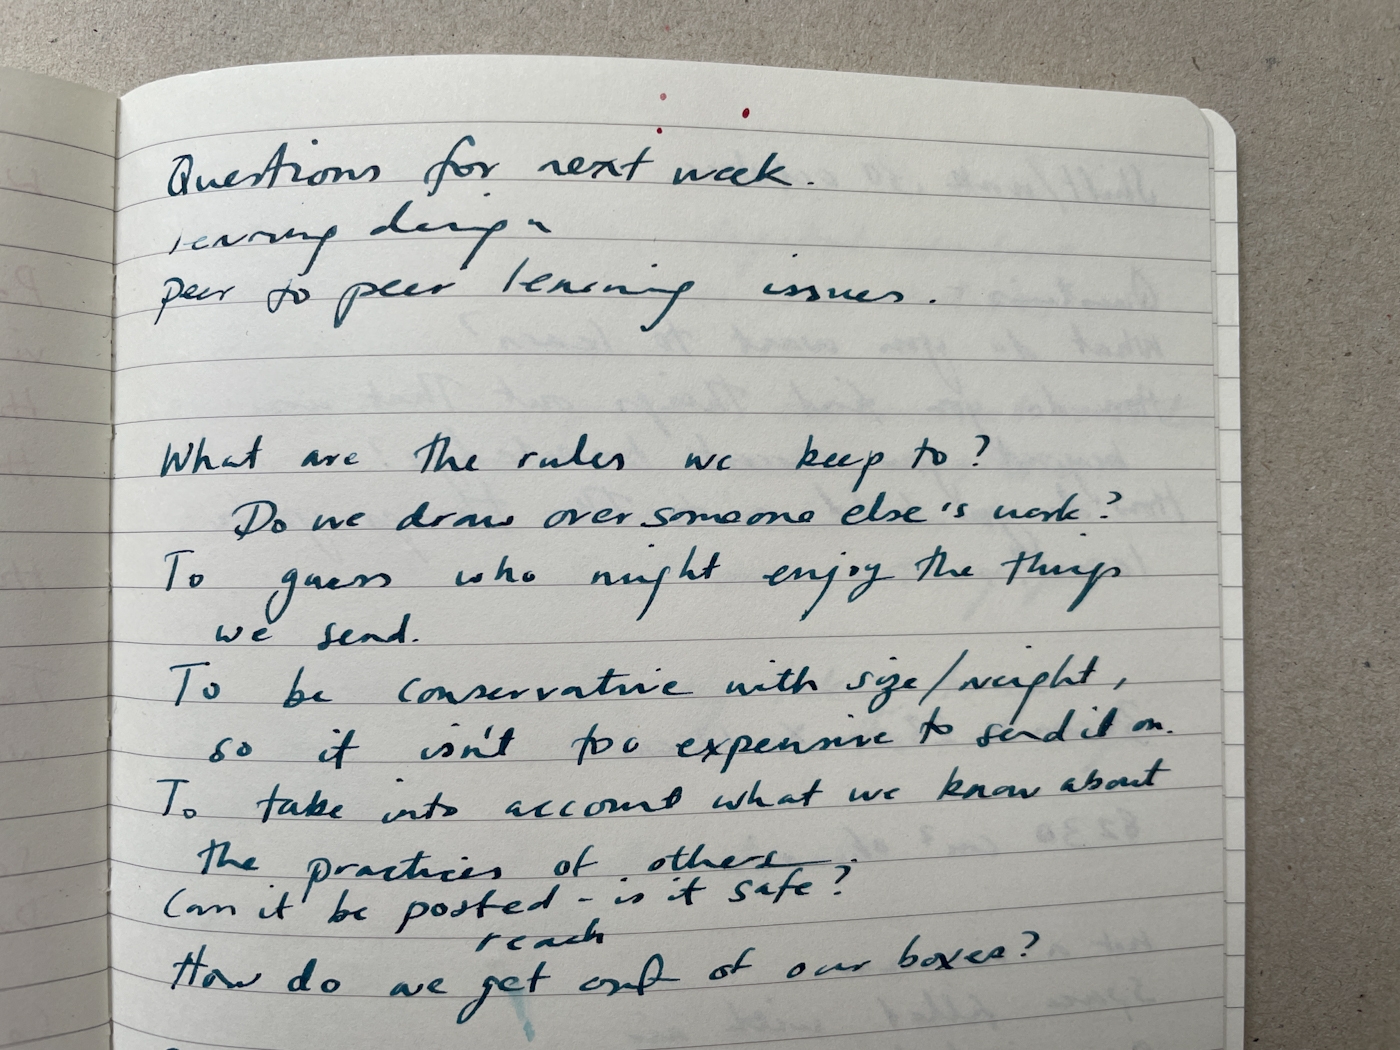 Questions for next week.
learning design
peer to peer learning issues.
What are the rules we keep to?
Do we draw over someone else's work?
To guess who might enjoy the things
we send.
To be conservative with size/weight,
so it isn't too expensive to send it on.
To take into account what we know about
the practices of others.
Can it be posted - is it safe?
reach
How do we get out of our boxes?